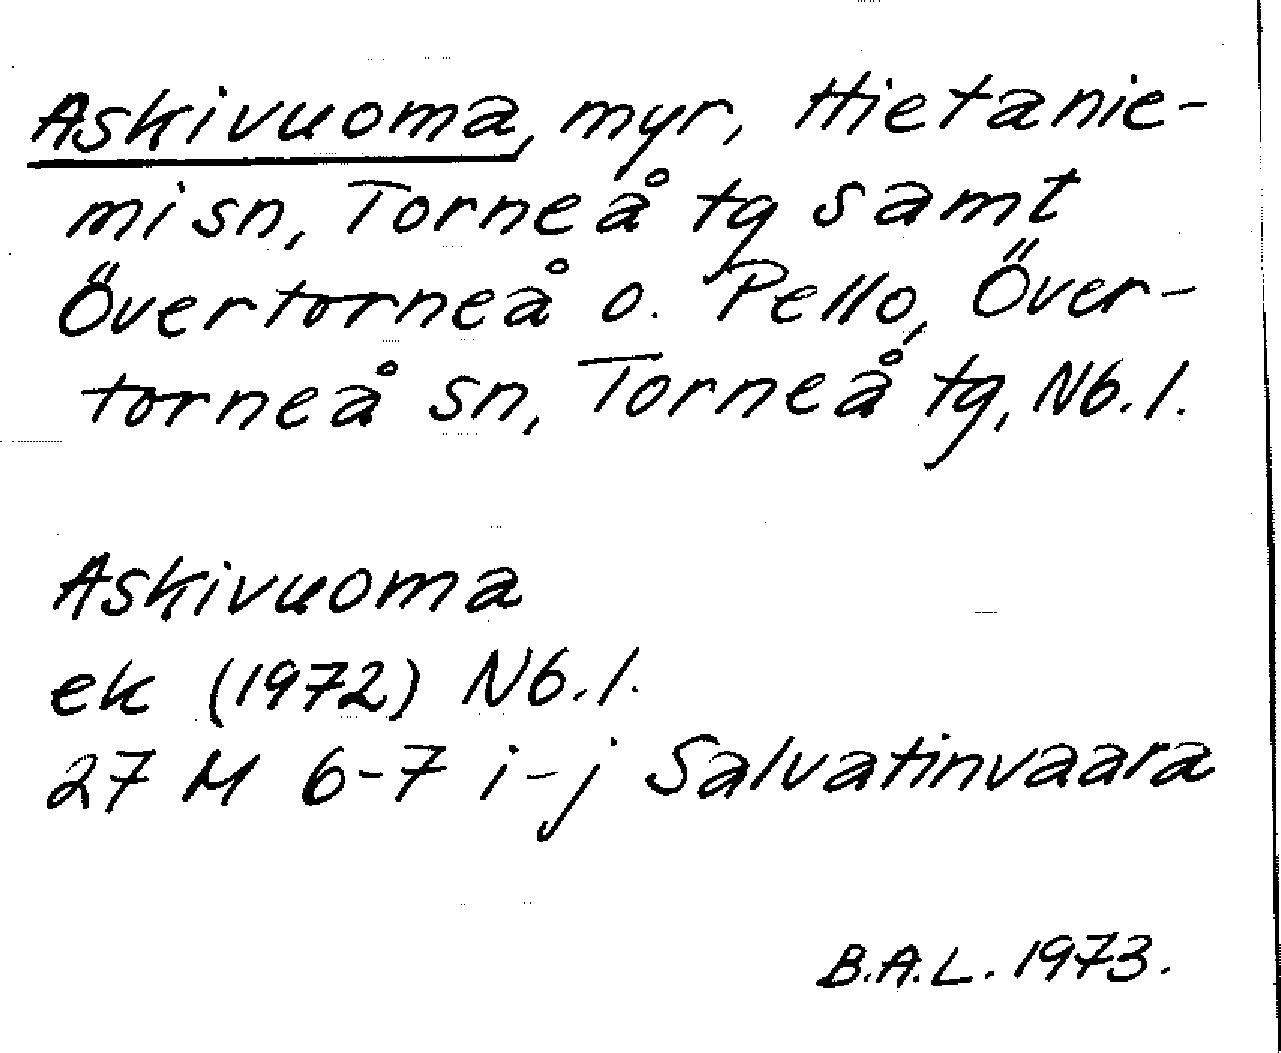 Askivuoma, myr, Hietanie-
mi sn, Torneå tg samt
Övertorneå o. Pello, Över-
torneå sn, Torneå tg, Nb.l.
Askivuoma
ek (1972) Nb.l.
27 M 6-7 i-j Salvatinvaara
B.A.L. 1973.